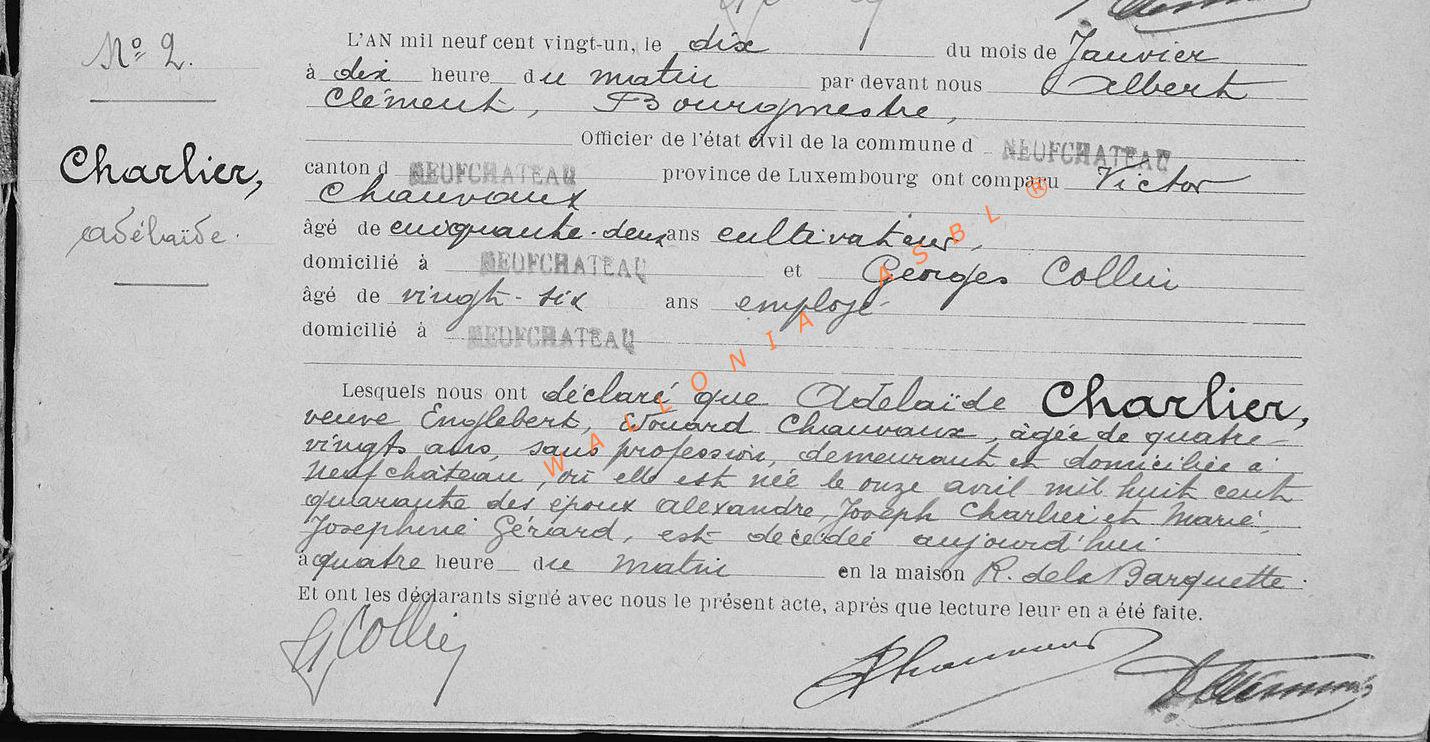 Nº 2.
Charlier,
Adélaïde.
L'AN mil neuf cent vingt-un, le dix du mois de Janvier
à dix heure du matin par devant nous Albert
Clément, Bourgmestre,
Officier de l'état civil de la commune d NEUFCHATEAU
canton d NEUFCHATEAU province de Luxembourg ont comparu Victor
Chauvaux
âgé de cinquante-deux ans cultivateur,
domicilié à NEUFCHATEAU et Georges Collin
âgé de vingt-six ans employé
domicilié à NEUFCHATEAU
Lesquels nous ont déclaré que Adélaïde Charlier,
veuve Englebert, Edouard Chauvaux, âgée de quatre-
vingts ans, sans profession, demeurant et domiciliée à
Neufchâteau, où elle est née le onze avril mil huit cent
quarante des époux Alexandre, Joseph Charlier et Marie,
Josephine Gérard, est décédée aujourd'hui
à quatre heure du matin en la maison R. de la Barquette.
Et ont les déclarants signé avec nous le présent acte, après que lecture leur en a été faite.
G Collin
WALLONIA ASBL ®